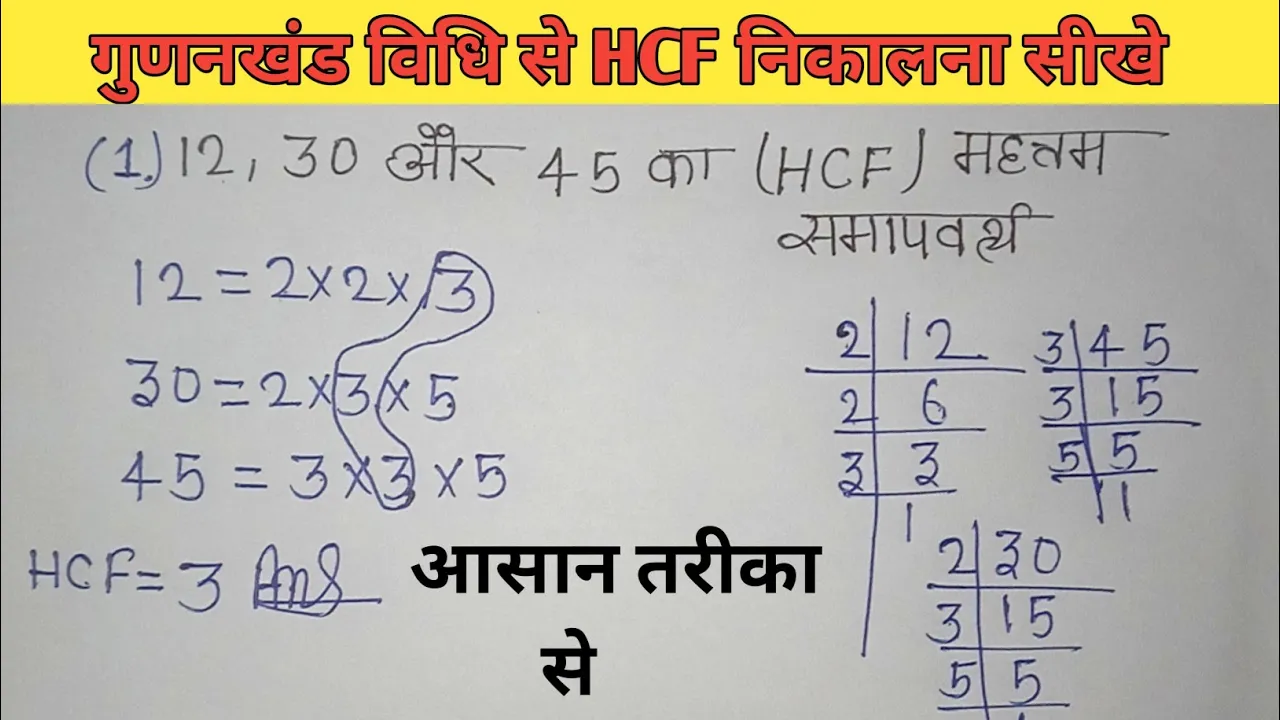 गुणनखंड विधि से HCF निकालना सीखे
(1.) 12, 30 और 45 का (HCF) महत्तम
समापवर्त्य
12 = 2×2×3
30 = 2×3×5
45 = 3×3×5
HCF = 3 Ans
आसान तरीका
से
2 12
2 6
3 3
1
3 45
3 15
5 5
1
2 30
3 15
5 5
1